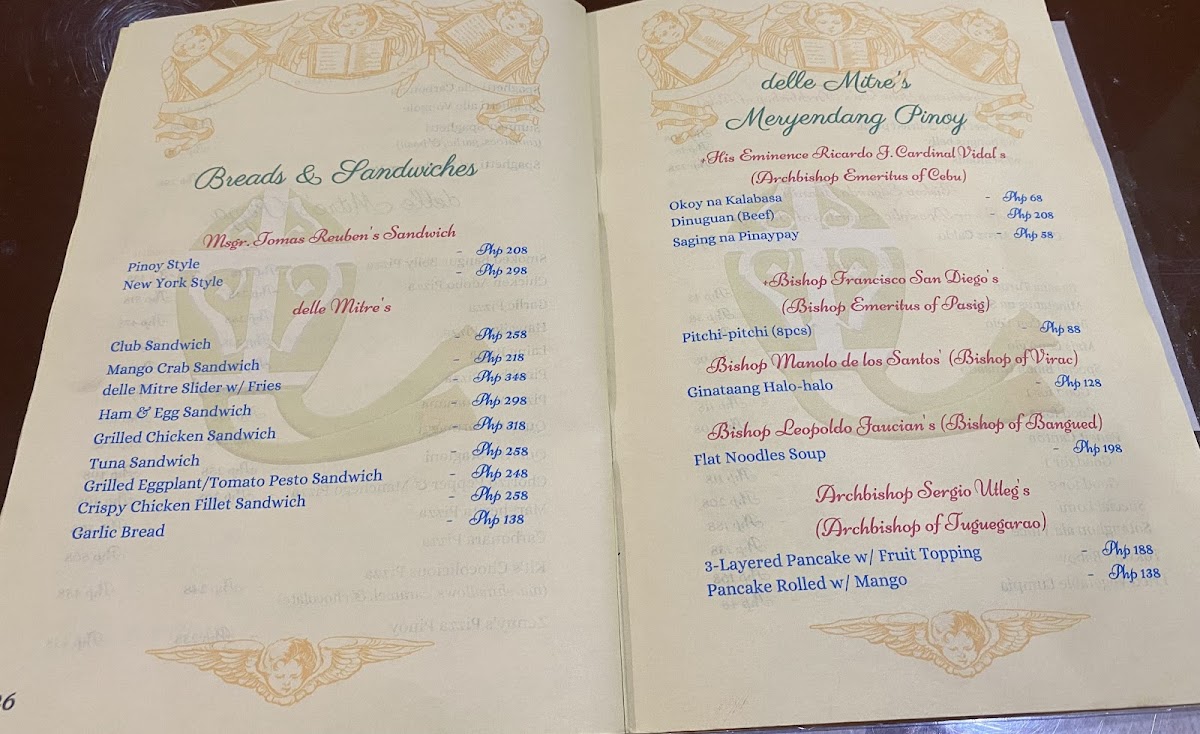 Breads & Sandwiches
Msgr. Tomas Reuben's Sandwich
Pinoy Style - Php 208
New York Style - Php 298
delle Mitre's
Club Sandwich - Php 258
Mango Crab Sandwich - Php 218
delle Mitre Slider w/ Fries - Php 348
Ham & Egg Sandwich - Php 298
Grilled Chicken Sandwich - Php 318
Tuna Sandwich - Php 258
Grilled Eggplant/Tomato Pesto Sandwich - Php 248
Crispy Chicken Fillet Sandwich - Php 258
Garlic Bread - Php 138
delle Mitre's
Meryendang Pinoy
+His Eminence Ricardo J. Cardinal Vidal's
(Archbishop Emeritus of Cebu)
Okoy na Kalabasa - Php 68
Dinuguan (Beef) - Php 208
Saging na Pinaypay - Php 58
+Bishop Francisco San Diego's
(Bishop Emeritus of Pasig)
Pitchi-pitchi (8pcs) - Php 88
Bishop Manolo de los Santos' (Bishop of Virac)
Ginataang Halo-halo - Php 128
Bishop Leopoldo Jaucian's (Bishop of Bangued)
Flat Noodles Soup - Php 198
Archbishop Sergio Utleg's
(Archbishop of Tuguegarao)
3-Layered Pancake w/ Fruit Topping - Php 188
Pancake Rolled w/ Mango - Php 138